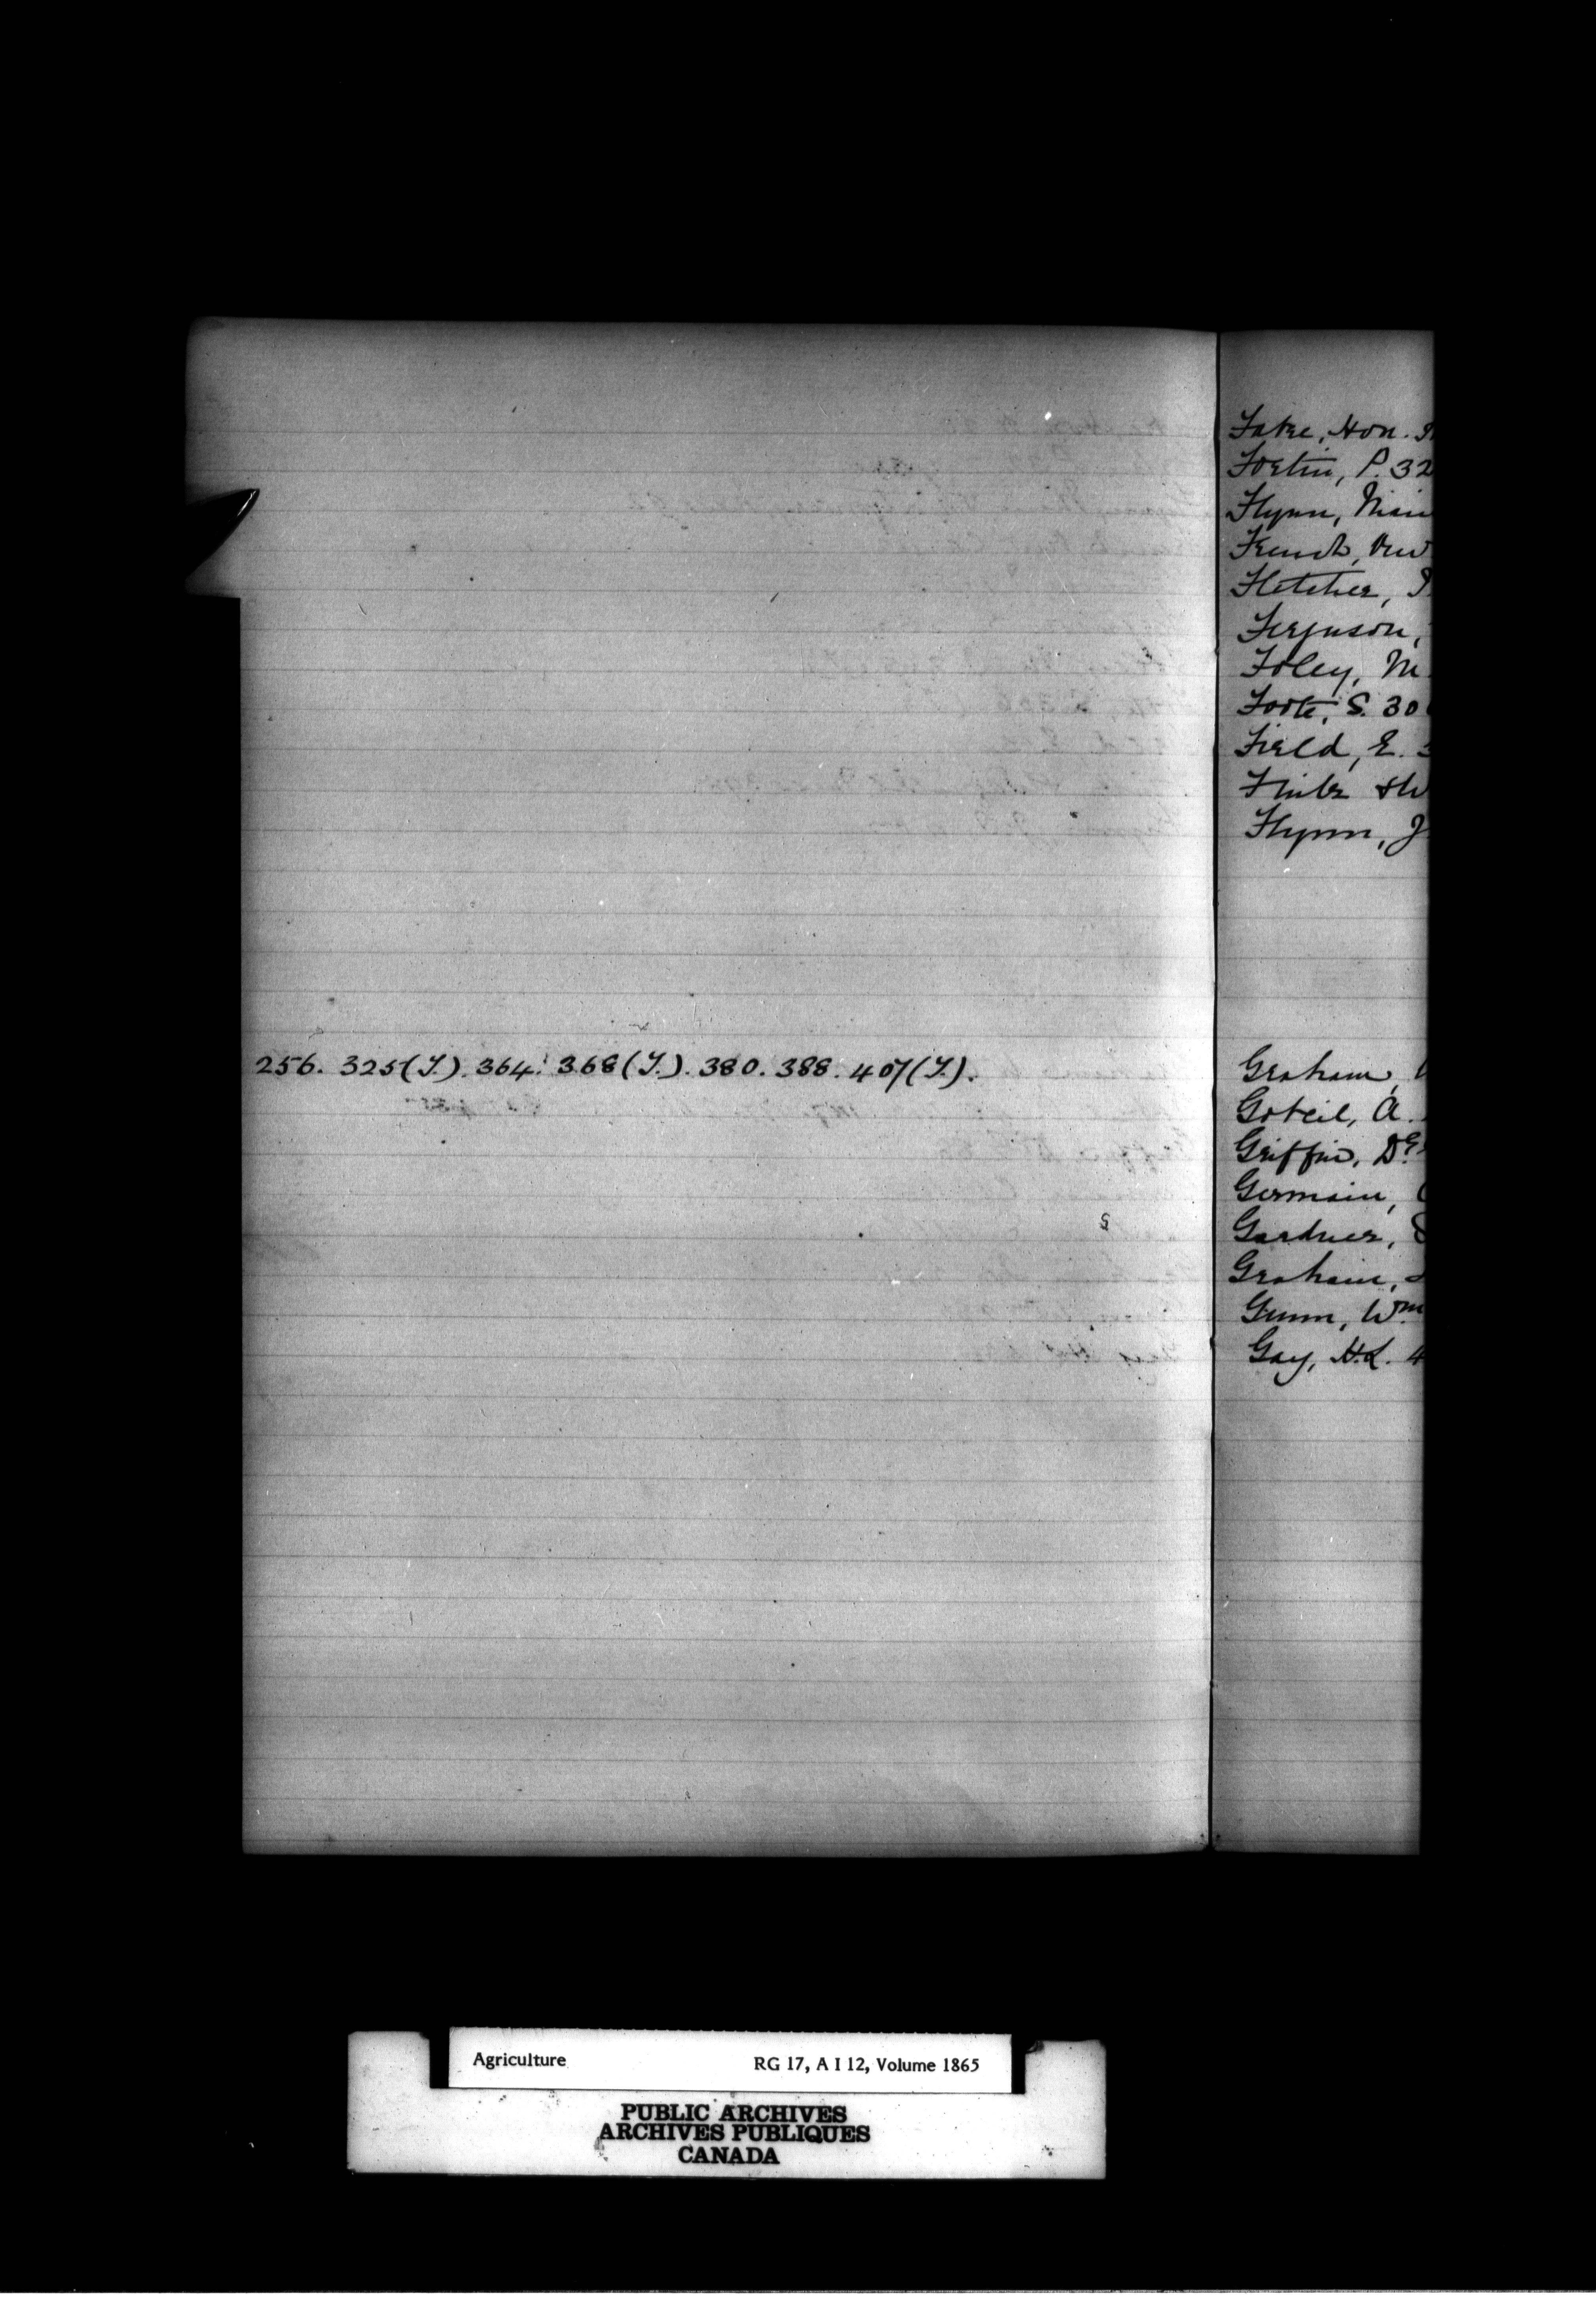 256. 325(T.). 364. 368(T.). 380. 388. 407(T.).
Fabre, Hon.
Fortin, P. 32
Flynn,
French,
Fletcher,
Ferguson,
Foley, M
Foote, S. 30
Field, E.
Flynn, J
Graham,
Gobeil, A.
Griffin,
Germain,
Gardner,
Graham,
Gunn, Wm
Gay, H.L. 4
Agriculture RG 17, A I 12, Volume 1865
PUBLIC ARCHIVES
ARCHIVES PUBLIQUES
CANADA